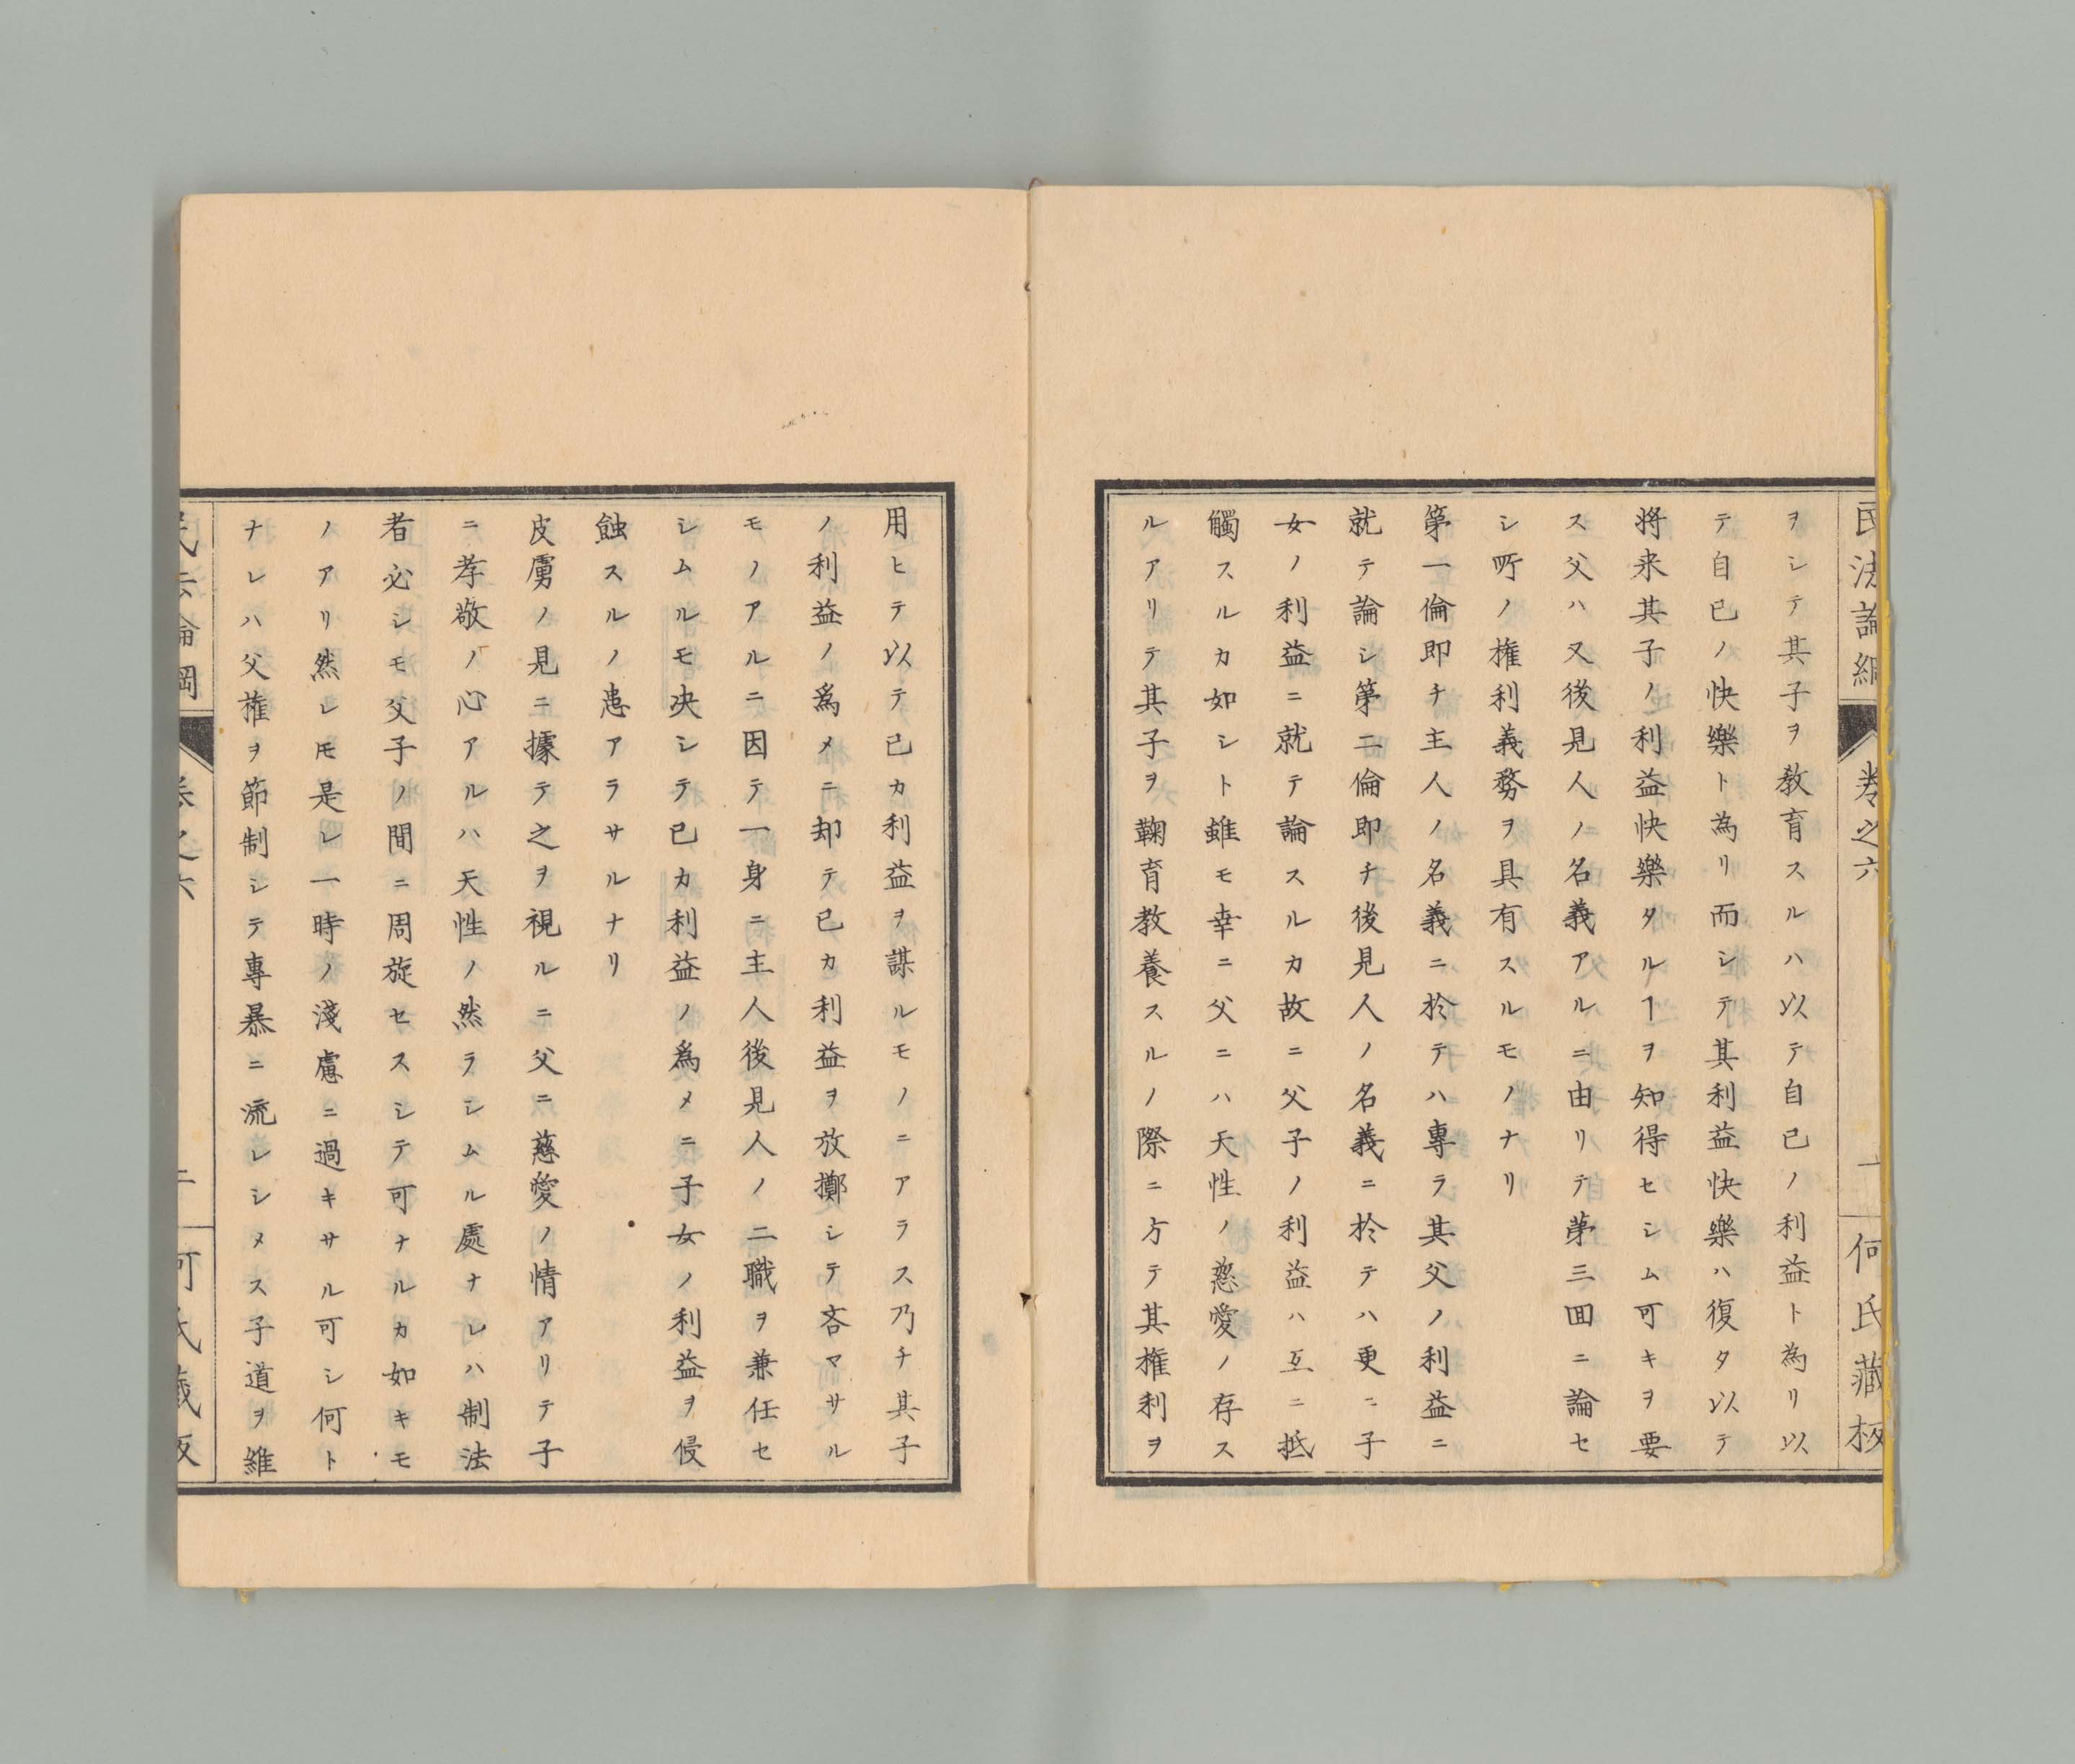 民法論綱
卷之六
十
何氏藏板
ヲシテ其子ヲ教育スルハ以テ自己ノ利益ト為リ以
テ自已ノ快樂ト為リ而シテ其利益快樂ハ復タ以テ
将来其子ノ利益快樂タルヿヲ知得セシム可キヲ要
ス父ハ又後見人ノ名義アルニ由リテ苐三囬ニ論セ
シ所ノ権利義務ヲ具有スルモノナリ
第一倫即チ主人ノ名義ニ於テハ專ラ其父ノ利益ニ
就テ論シ第二倫即チ後見人ノ名義ニ於テハ更ニ子
女ノ利益ニ就テ論スルカ故ニ父子ノ利益ハ互ニ抵
觸スルカ如シト雖モ幸ニ父ニハ天性ノ慈愛ノ存ス
ルアリテ其子ヲ鞠育教養スルノ際ニ方テ其権利ヲ
用ヒテ以テ已カ利益ヲ謀ルモノニアラス乃チ其子
ノ利益ノ爲メニ却テ已カ利益ヲ放擲シテ吝マサル
モノアルニ因テ一身ニ主人後見人ノ二職ヲ兼任セ
シムルモ决シテ已カ利益ノ爲メニ子女ノ利益ヲ侵
蝕スルノ患アラサルナリ
皮膚ノ見ニ據テ之ヲ視ルニ父ニ慈愛ノ情アリテ子
ニ孝敬ノ心アルハ天性ノ然ラシムル處ナレハ制法
者必シモ父子ノ間ニ周旋セスシテ可ナルカ如キモ
ノアリ然レ𪜈是レ一時ノ淺慮ニ過キサル可シ何ト
ナレハ父権ヲ節制シテ專暴ニ流レシメス子道ヲ維
民法論綱
卷之六
十
何氏藏板